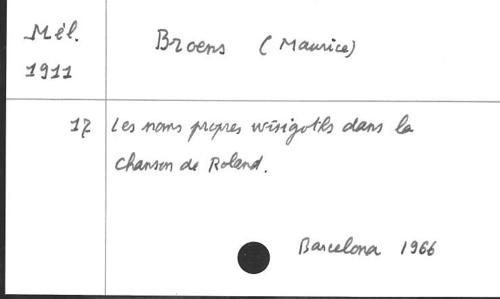 Mél.
1911
Broens (Maurice)
17 Les noms propres wisigoths dans la
Chanson de Roland.
Barcelona 1966